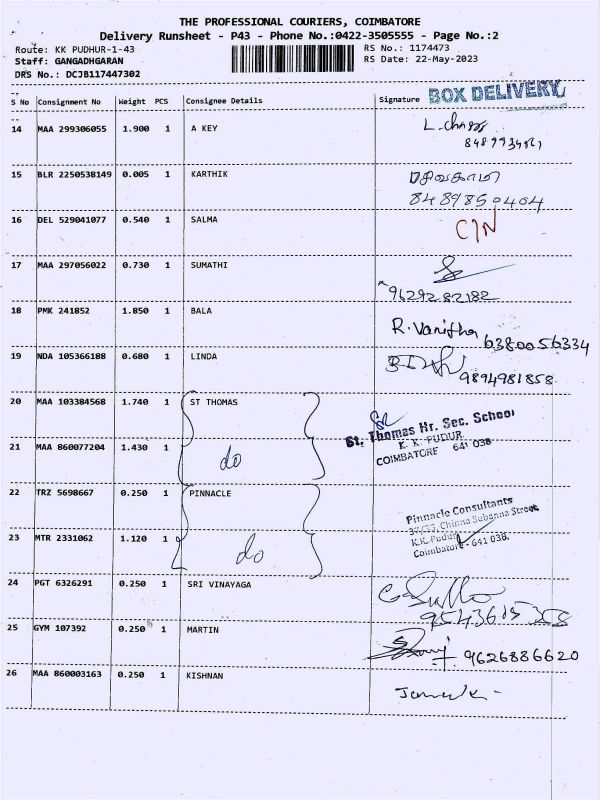 THE PROFESSIONAL COURIERS, COIMBATORE
Delivery Runsheet - P43 - Phone No.:0422-3505555 - Page No.:2
Route: KK PUDHUR-1-43 RS No.: 1174473
Staff: GANGADHGARAN RS Date: 22-May-2023
DRS No.: DCJB117447302
BOX DELIVERY
S No Consignment No Weight PCS Consignee Details Signature
14 MAA 299306055 1.900 1 A KEY
15 BLR 2250538149 0.005 1 KARTHIK சிவகாமி
8489850404
16 DEL 529041077 0.540 1 SALMA C/N
17 MAA 297056022 0.730 1 SUMATHI
9629282182
18 PMK 241852 1.850 1 BALA R. Vanitha 6380056334
19 NDA 105366188 0.680 1 LINDA
9894981858
20 MAA 103384568 1.740 1 ST THOMAS
St. Thomas Hr. Sec. School
K. K. PUDUR
COIMBATORE 641 038
21 MAA 860077204 1.430 1 do
22 TRZ 5698667 0.250 1 PINNACLE
Pinnacle Consultants
37/33, Chinna Subanna Street
K.K. Pudur
Coimbatore - 641 038.
23 MTR 2331062 1.120 1 do
24 PGT 6326291 0.250 1 SRI VINAYAGA
25 GYM 107392 0.250 1 MARTIN
9626886620
26 MAA 860003163 0.250 1 KISHNAN